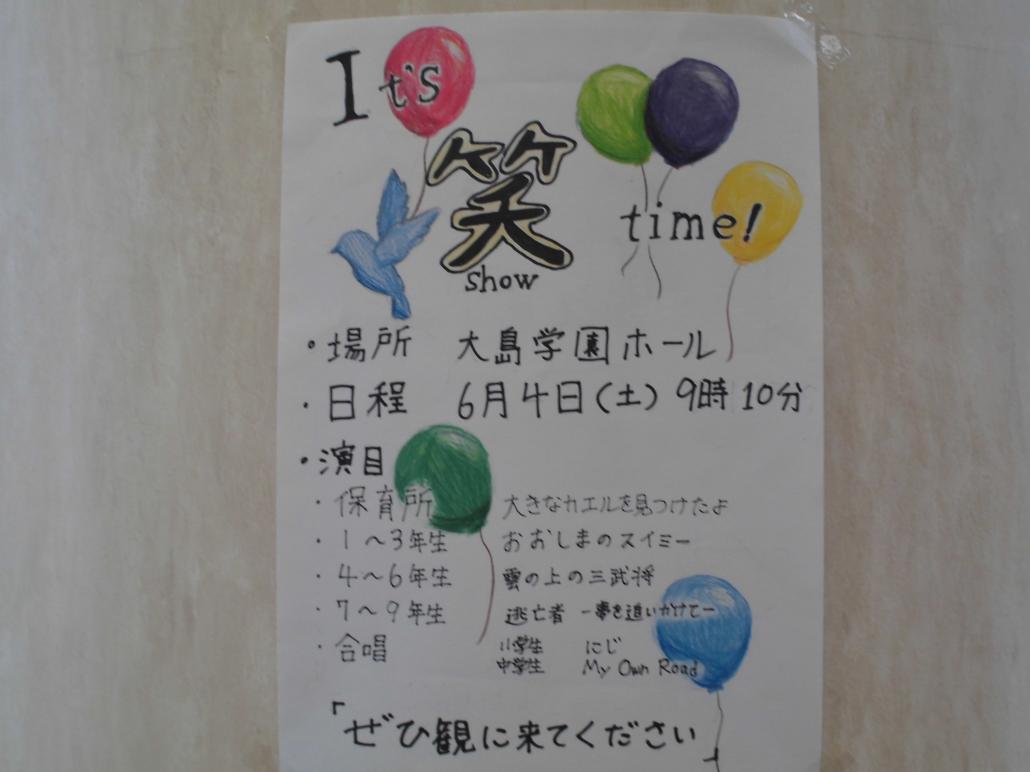 It's 笑 time!
show
・場所 大島学園ホール
・日程 6月4日(土) 9時10分
・演目
・保育所 大きなカエルを見つけたよ
・1～3年生 おおしまのスイミー
・4～6年生 雲の上の三武将
・7～9年生 逃亡者 ー夢を追いかけてー
・合唱 小学生 にじ
中学生 My Own Road
「ぜひ観に来てください」